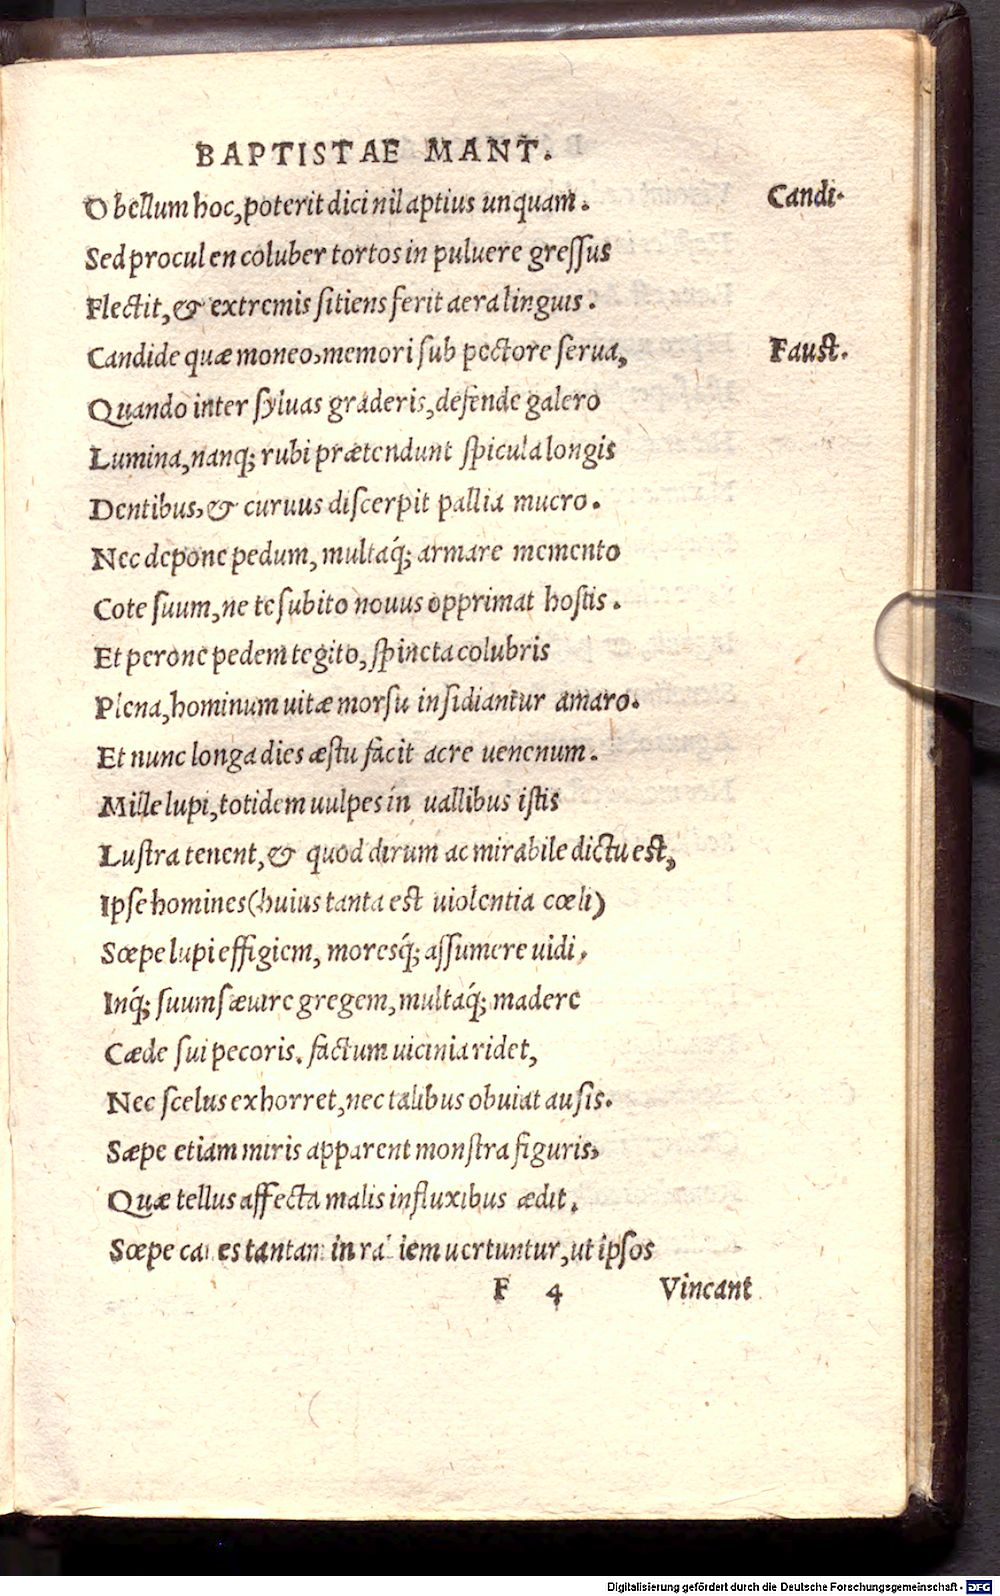 BAPTISTAE MANT.
O bellum hoc, poterit dici nil aptius unquam. Candi.
Sed procul en coluber tortos in puluere greſſus
Flectit, & extremis ſitiens ferit aera linguis.
Candide quæ moneo, memori ſub pectore ſerua, Fauſt.
Quando inter ſyluas graderis, defende galero
Lumina, nanq; rubi prætendunt ſpicula longis
Dentibus, & curuus diſcerpit pallia mucro.
Nec depone pedum, multaq́; armare memento
Cote ſuum, ne te ſubito nouus opprimat hoſtis.
Et perone pedem tegito, ſpineta colubris
Plena, hominum uitæ morſu inſidiantur amaro.
Et nunc longa dies æſtu facit acre uenenum.
Mille lupi, totidem uulpes in uallibus iſtis
Luſtra tenent, & quod dirum ac mirabile dictu eſt,
Ipſe homines (huius tanta eſt uiolentia cœli)
Sœpe lupi effigiem, moresq́; aſſumere uidi.
Inq́; ſuum ſæuire gregem, multaq́; madere
Cæde ſui pecoris. factum uicinia ridet,
Nec ſcelus exhorret, nec talibus obuiat auſis.
Sæpe etiam miris apparent monſtra figuris,
Quæ tellus affecta malis influxibus ædit.
Sœpe in uertuntur, ut ipſos
F 4 Vincant
Digitalisierung gefördert durch die Deutsche Forschungsgemeinschaft - DFG